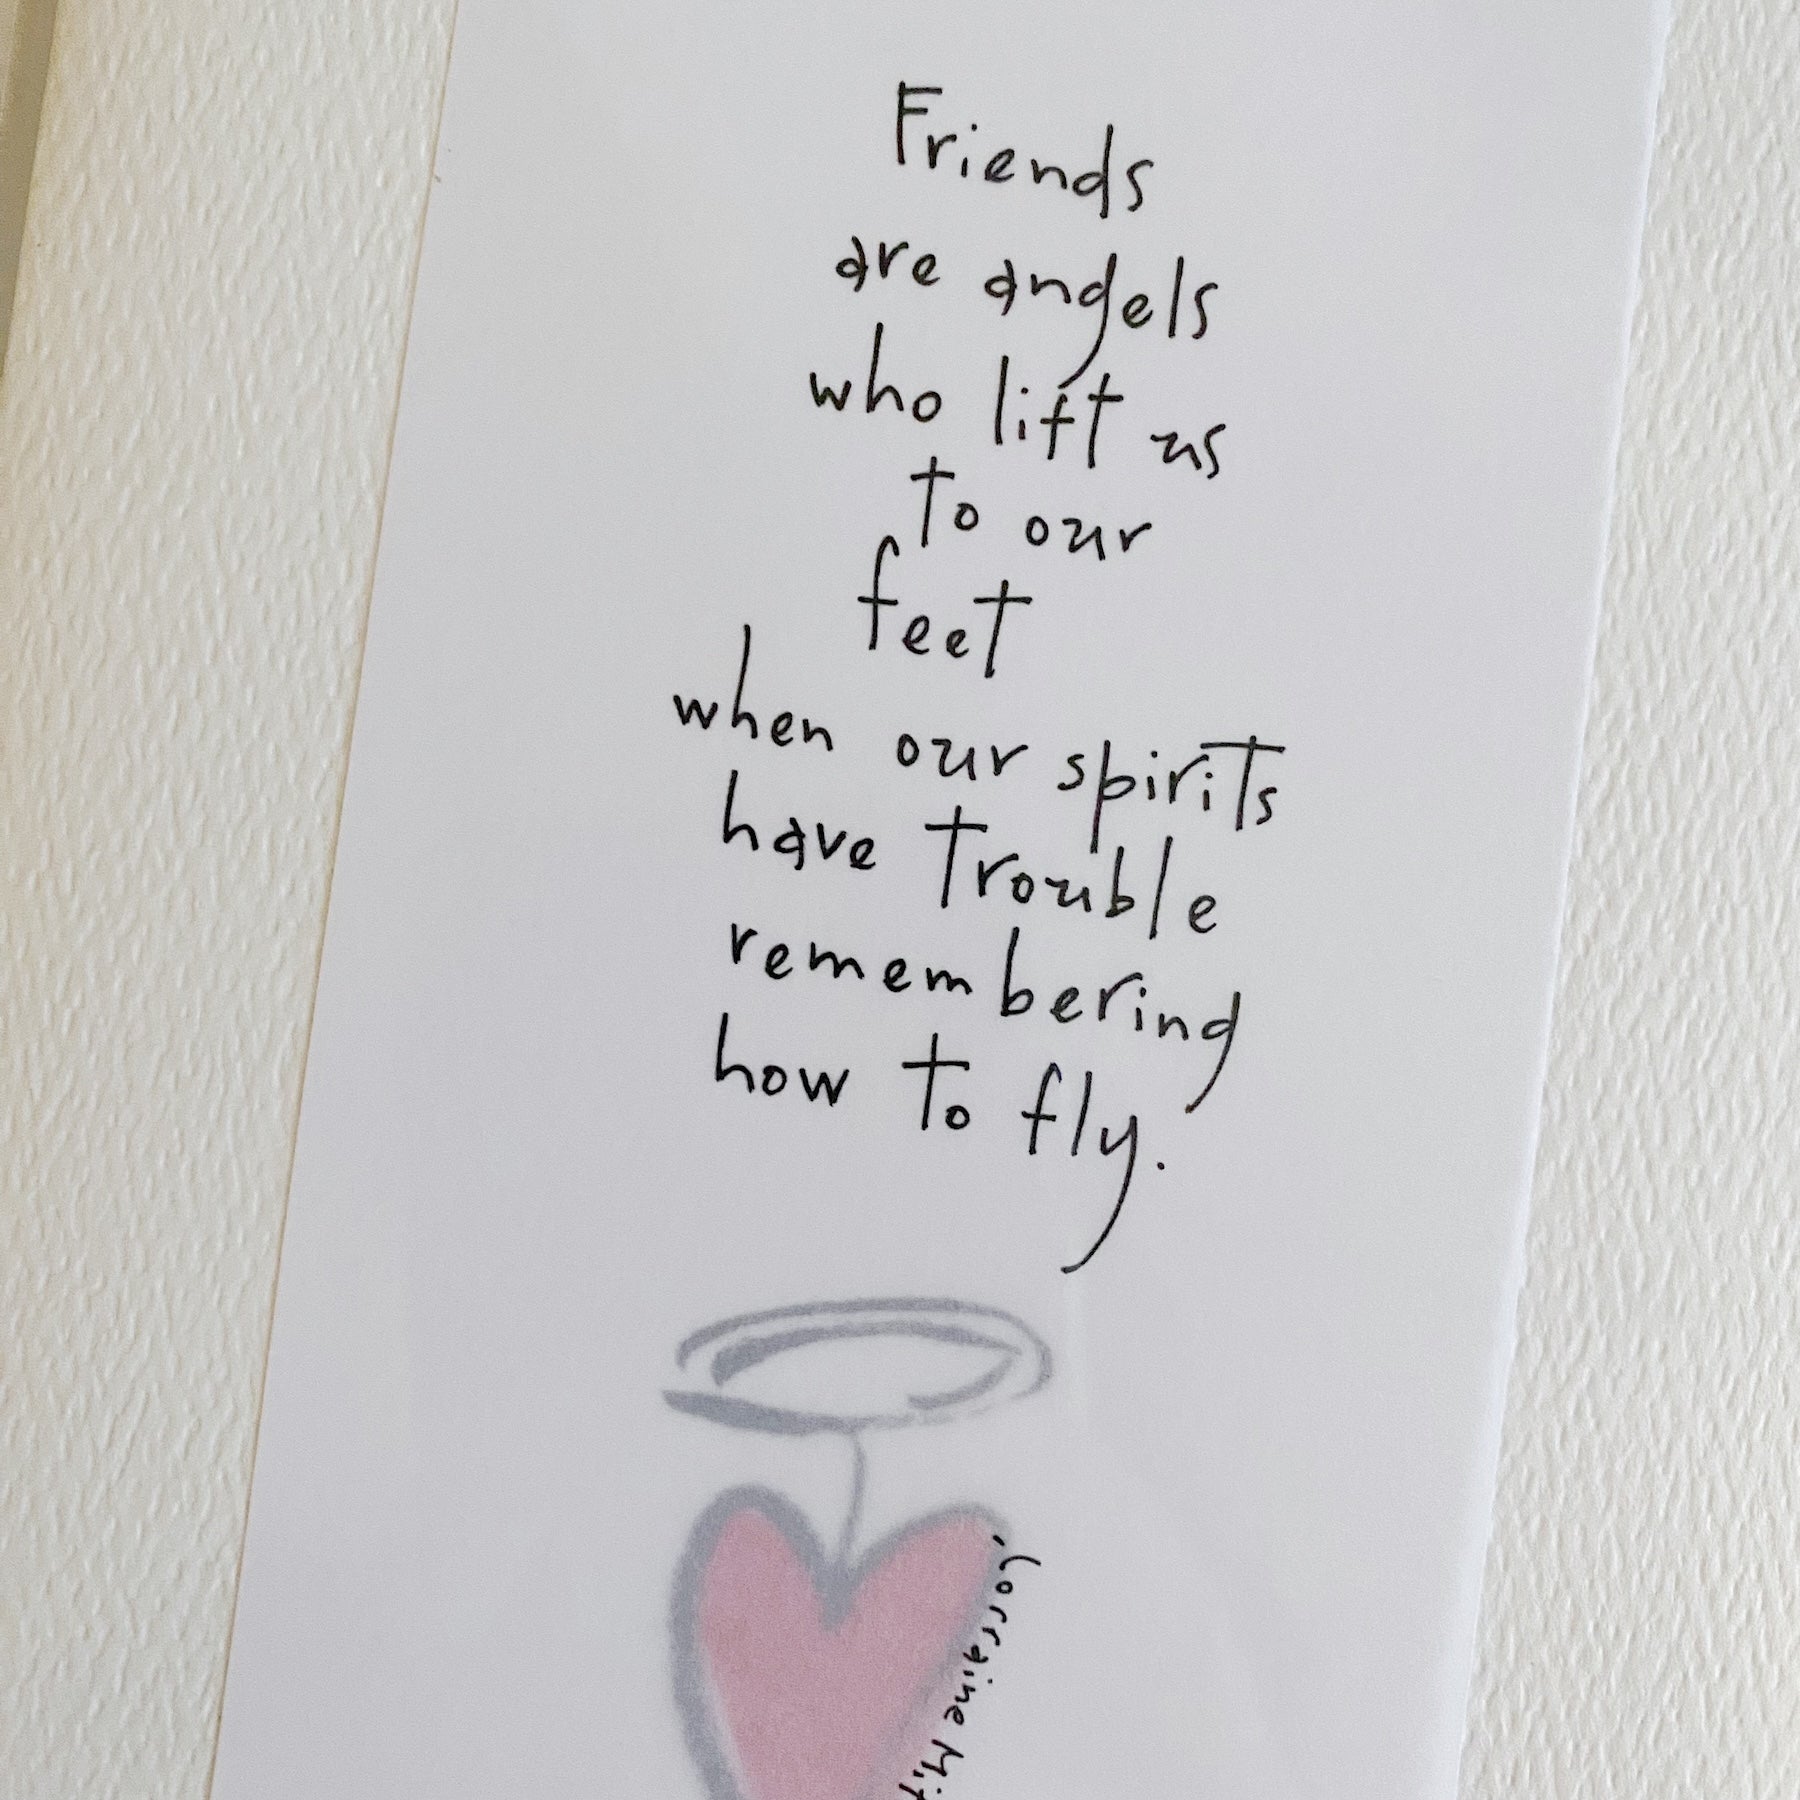 Friends
are angels
who lift us
to our
feet
when our spirits
have trouble
remembering
how to fly.
Lorraine